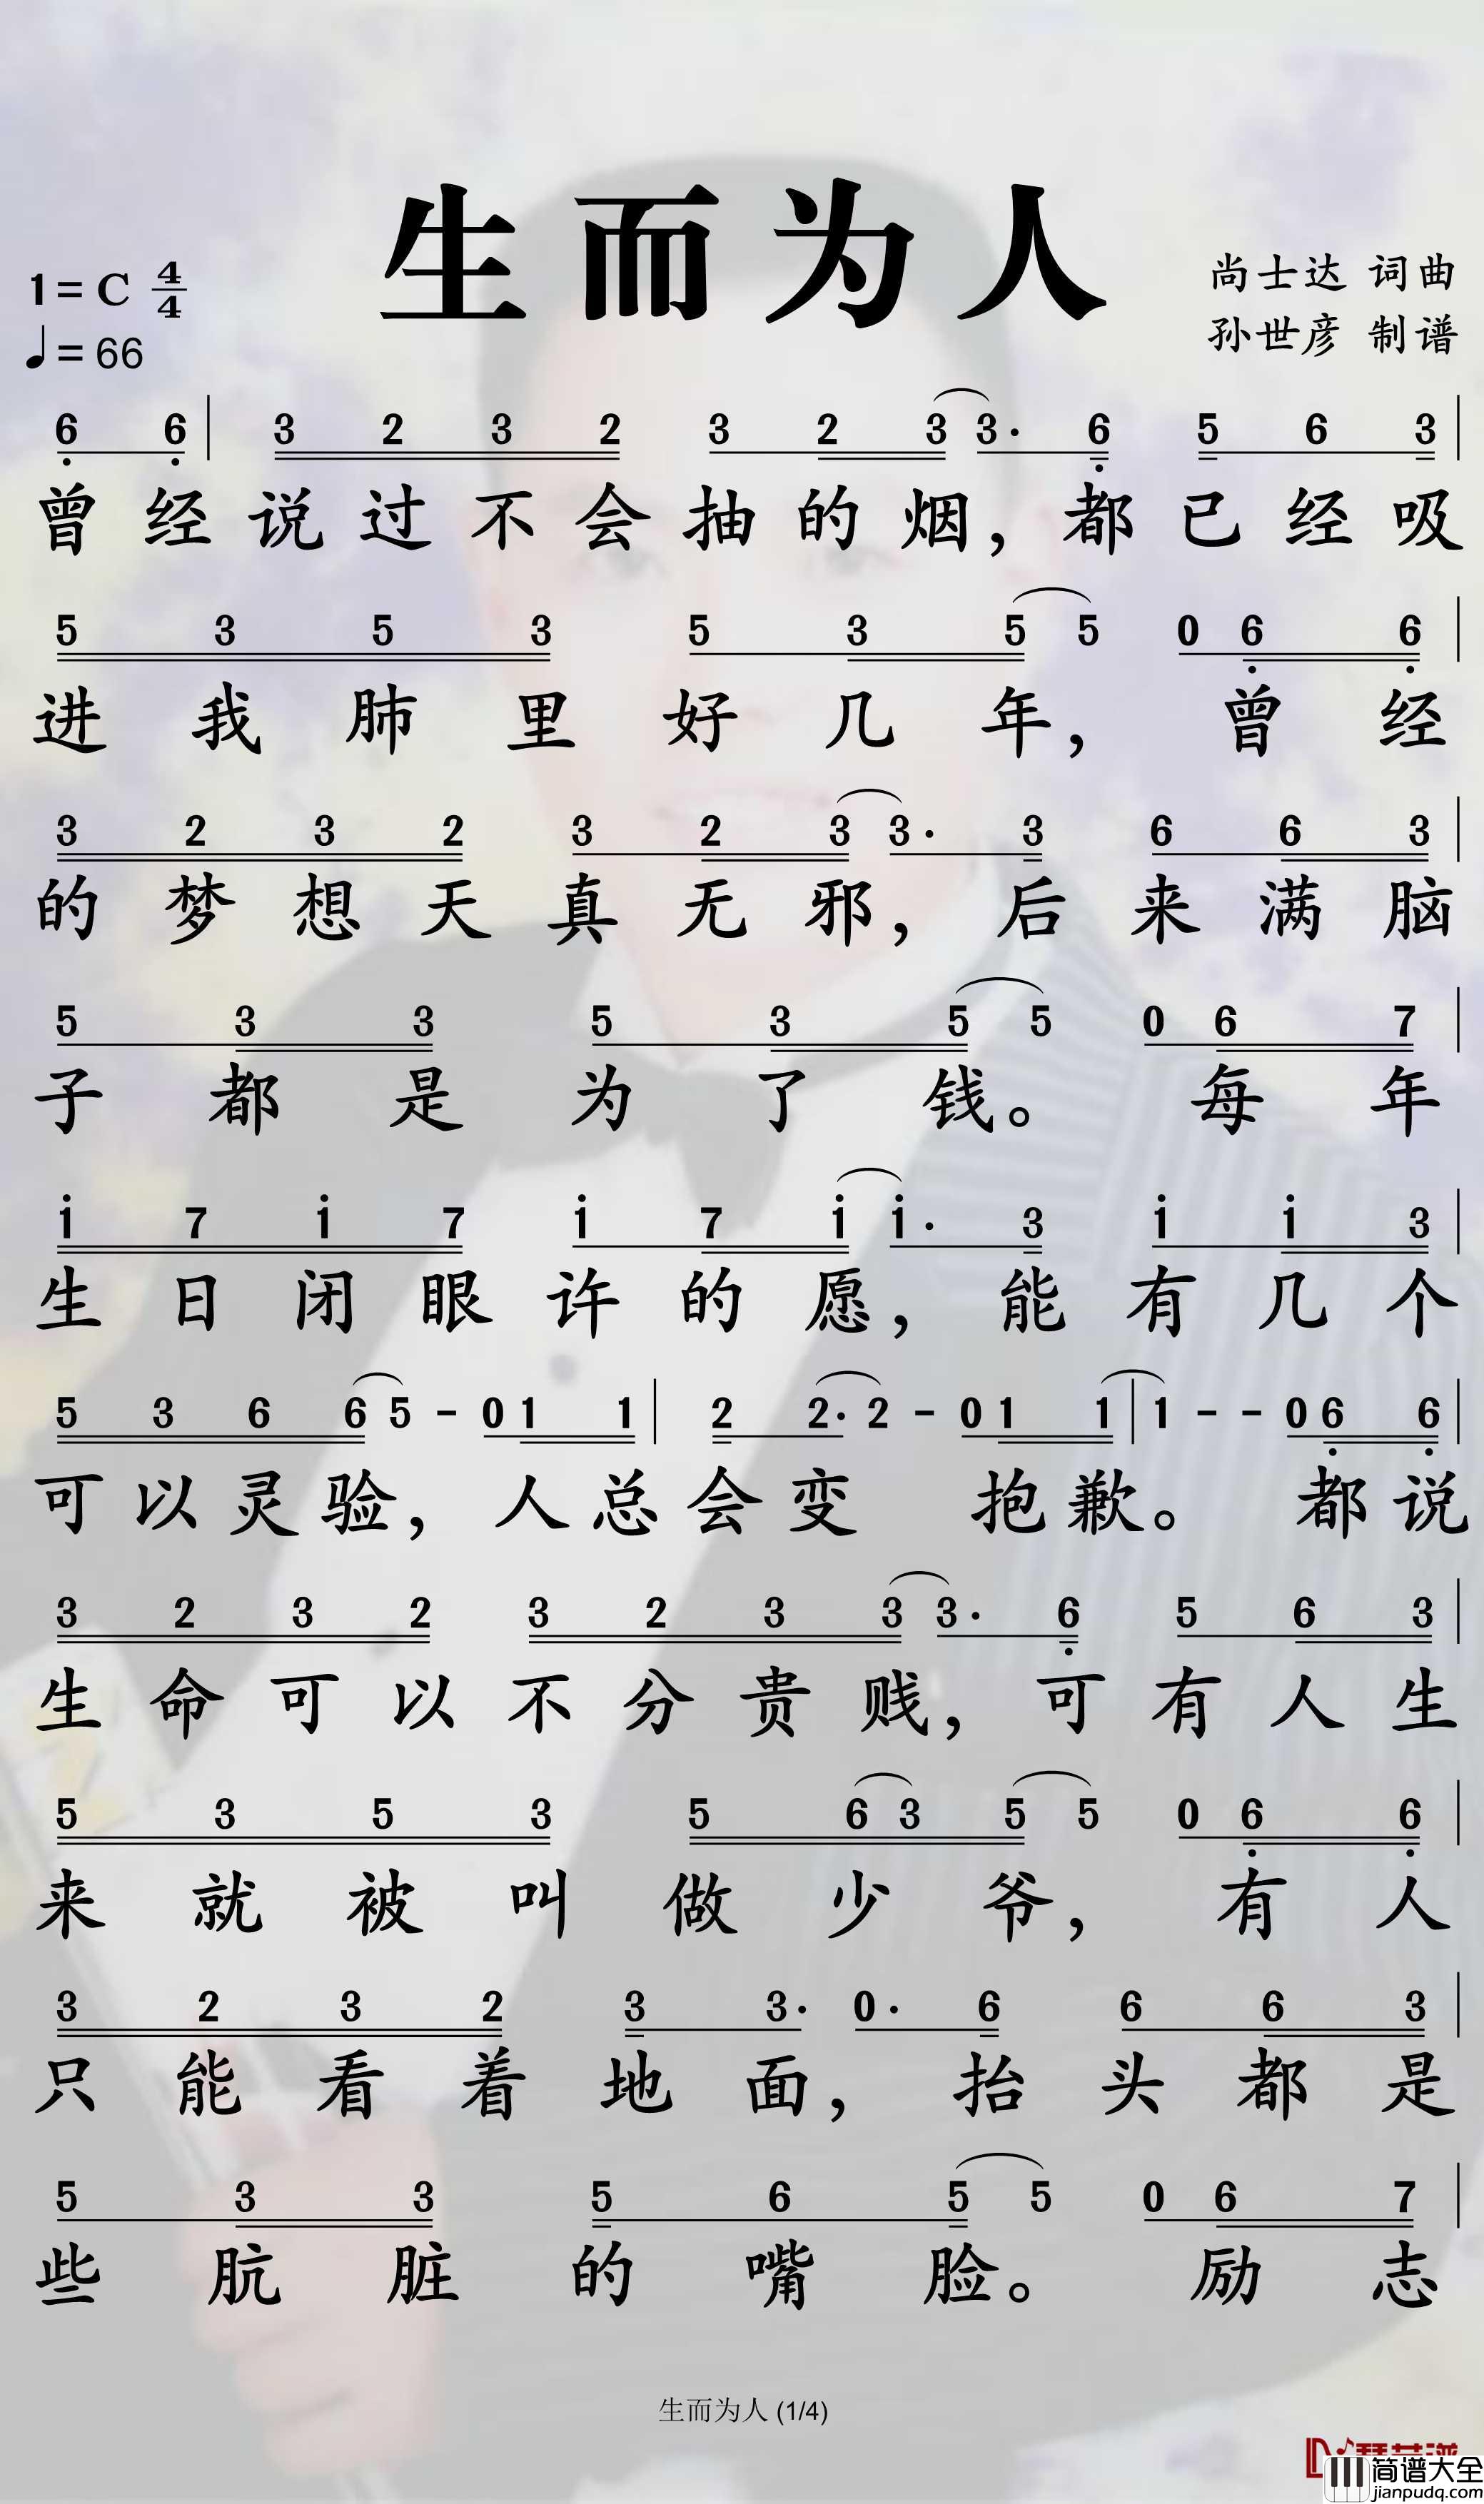 生而为人
1=C 4/4
尚士达 词曲
♩=66
孙世彦 制谱
6 6 | 3 2 3 2 3 2 3 3· 6 5 6 3 |
曾经说过不会抽的烟，都已经吸
5 3 5 3 5 3 5 5 0 6 6 |
进我肺里好几年，曾经
3 2 3 2 3 2 3 3· 3 6 6 3 |
的梦想天真无邪，后来满脑
5 3 3 5 3 5 5 0 6 7 |
子都是为了钱。每年
i 7 i 7 i 7 i i· 3 i i 3 |
生日闭眼许的愿，能有几个
5 3 6 6 5 - 0 1 1 | 2 2· 2 - 0 1 1 | 1 - - 0 6 6 |
可以灵验，人总会变 抱歉。都说
3 2 3 2 3 2 3 3 3· 6 5 6 3 |
生命可以不分贵贱，可有人生
5 3 5 3 5 6 3 5 5 0 6 6 |
来就被叫做少爷，有人
3 2 3 2 3 3· 0· 6 6 6 3 |
只能看着地面，抬头都是
5 3 3 5 6 5 5 0 6 7 |
些肮脏的嘴脸。励志
生而为人 (1/4)
简谱大全
jianpudq.com